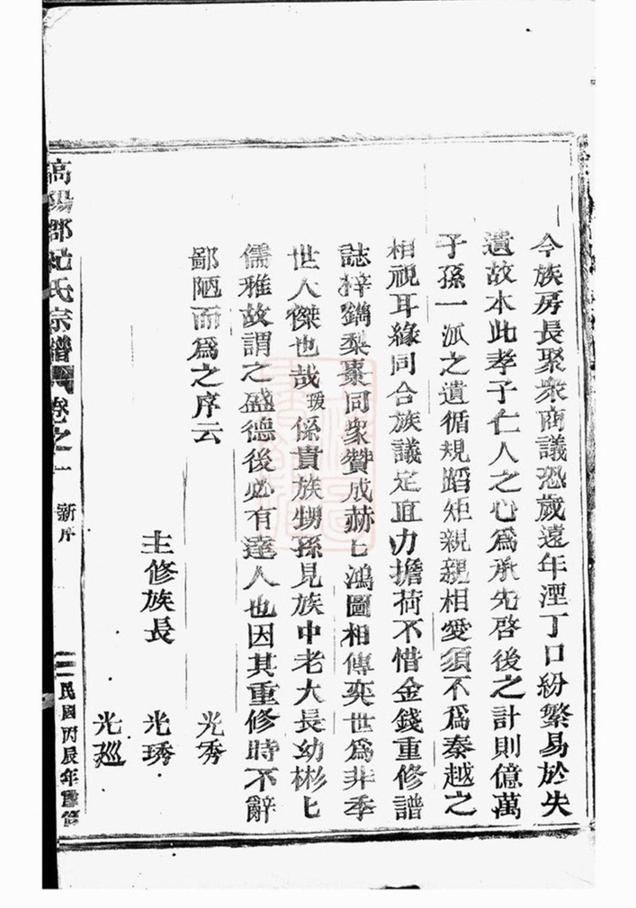 今族房長聚衆商議恐歲遠年湮丁口紛繁易於失
遺故本此孝子仁人之心爲承先啓後之計則億萬
子孫一派之遺循規蹈矩親親相愛須不爲秦越之
相視耳緣同合族議定直力擔荷不惜金錢重修譜
誌梓鐫梨棗同衆贊成赫匕鴻圖相傳奕世爲非季
世人傑也哉 係貴族甥孫見族中老大長幼彬匕
儒雅故謂之盛德後必有達人也因其重修時不辭
鄙陋而爲之序云
光秀
主修族長 光琇
光廵
高陽郡 氏宗譜 卷之一 新序 二 民國丙辰年重修